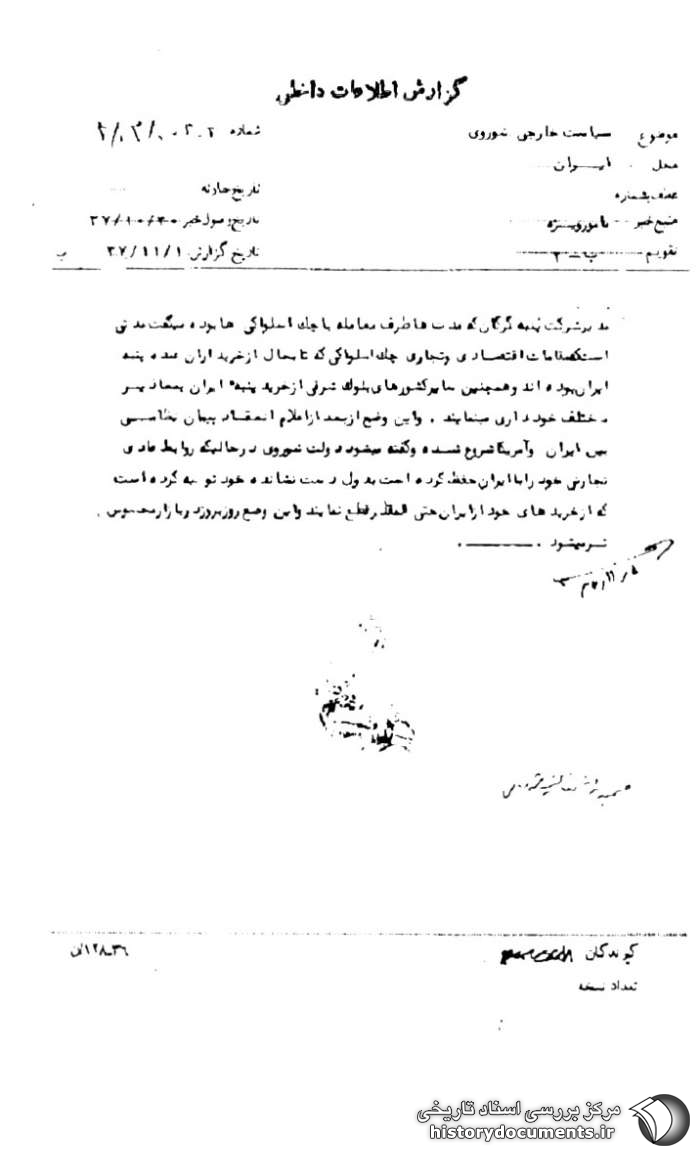 گزارش اطلاعات داخلی
موضوع سیاست خارجی شوروی
شماره
محل ایــران
عطف بشماره
تاریخ حادثه
منبع خبر مامور ویژه
تاریخ وصول خبر ۳۷/۱۰/۳۰
تقویم ب-۳
تاریخ گزارش ۳۷/۱۱/۱
مدیر شرکت پنبه گرگان که مدت ها طرف معامله با چک اسلواکی ها بوده میگفت مدتی
است که مقامات اقتصادی و تجاری چک اسلواکی که تا بحال از خریداران عمده پنبه
ایران بوده اند و همچنین سایر کشورهای بلوک شرقی از خرید پنبه ایران بمعاذیر
مختلف خودداری مینمایند . و این وضع از بعد از اعلام انعقاد پیمان نظامی
بین ایران و آمریکا شروع شده و گفته میشود دولت شوروی در حالیکه روابط عادی
تجارتی خود را با ایران حفظ کرده است بدول دست نشانده خود توصیه کرده است
که از خرید های خود از ایران حتی المقدور قطع نمایند و این وضع روز بروز در بازار محسوس
تر میشود .
گیرندگان
۳۶-۱۲۸/الف
تعداد نسخه
مرکز بررسی اسناد تاریخی
historydocuments.ir